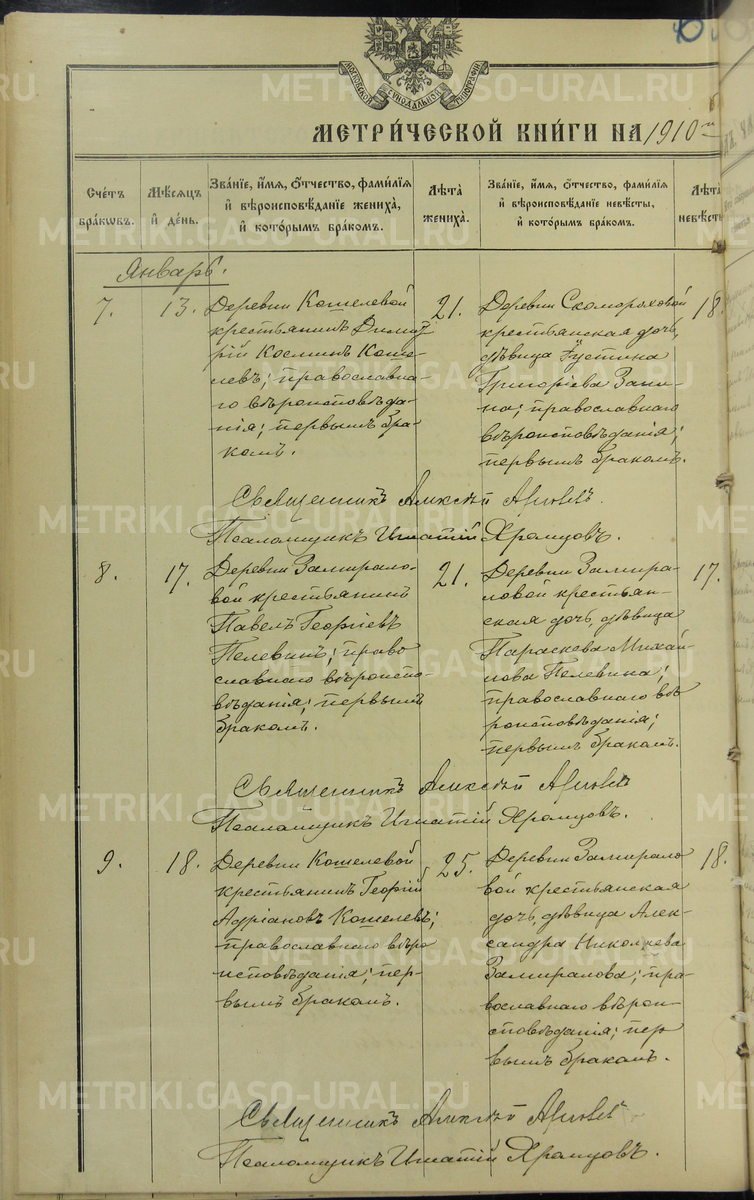 МОСКОВСКОЙ СѴНОДАЛЬНОЙ ТИПОГРАФІИ
МЕТРИ́ЧЕСКОЙ КНИ́ГИ НА 1910
Сче́тъ бра́ковъ.
Мѣ́сяцъ и́ де́нь.
Зва́нїе, и́мѧ, ѻ҆́тчество, фами́лїѧ и́ вѣроисповѣ́данїе жениха̀, и́ кото́рымъ бра́комъ.
Лѣ́та жениха̀.
Зва́нїе, и́мѧ, ѻ҆́тчество, фами́лїѧ и́ вѣроисповѣ́данїе невѣ́сты, и́ кото́рымъ бра́комъ.
Лѣ́та невѣ́сты
Январь.
7. 13.
Деревни Кошелевой
крестьянинъ Димит
рій Косминъ Коше-
левъ; православна-
го вѣроисповѣда-
нія; первымъ бра-
комъ.
21.
Деревни Скомороховой
крестьянская дочь,
дѣвица Іустина
Григоріева Зани-
на; православнаго
вѣроисповѣданія;
первымъ бракомъ.
18.
Священникъ Алексѣй
Псаломщикъ Игнатій Храмцовъ.
8. 17.
Деревни Замирало-
вой крестьянинъ
Павелъ Георгіевъ
Пелевинъ; право
славнаго вѣроиспо-
вѣданія; первымъ
бракомъ.
21.
Деревни Замира-
ловой крестьян-
ская дочь, дѣвица
Параскева Михаи-
лова Пелевина;
православнаго вѣ
роисповѣданія;
первымъ бракомъ.
17.
Священникъ Алексѣй
Псаломщикъ Игнатій Храмцовъ.
9. 18.
Деревни Кошелевой
крестьянинъ Георгій
Адріановъ Кошелевъ;
православнаго вѣро
исповѣданія; пер-
вымъ бракомъ.
25.
Деревни Замирало
вой крестьянская
дочь, дѣвица Алек-
сандра Николаева
Замиралова; пра-
вославнаго вѣрои-
сповѣданія; пер
вымъ бракомъ.
18.
Священникъ Алексѣй
Псаломщикъ Игнатій Храмцовъ.
METRIKI.GASO-URAL.RU